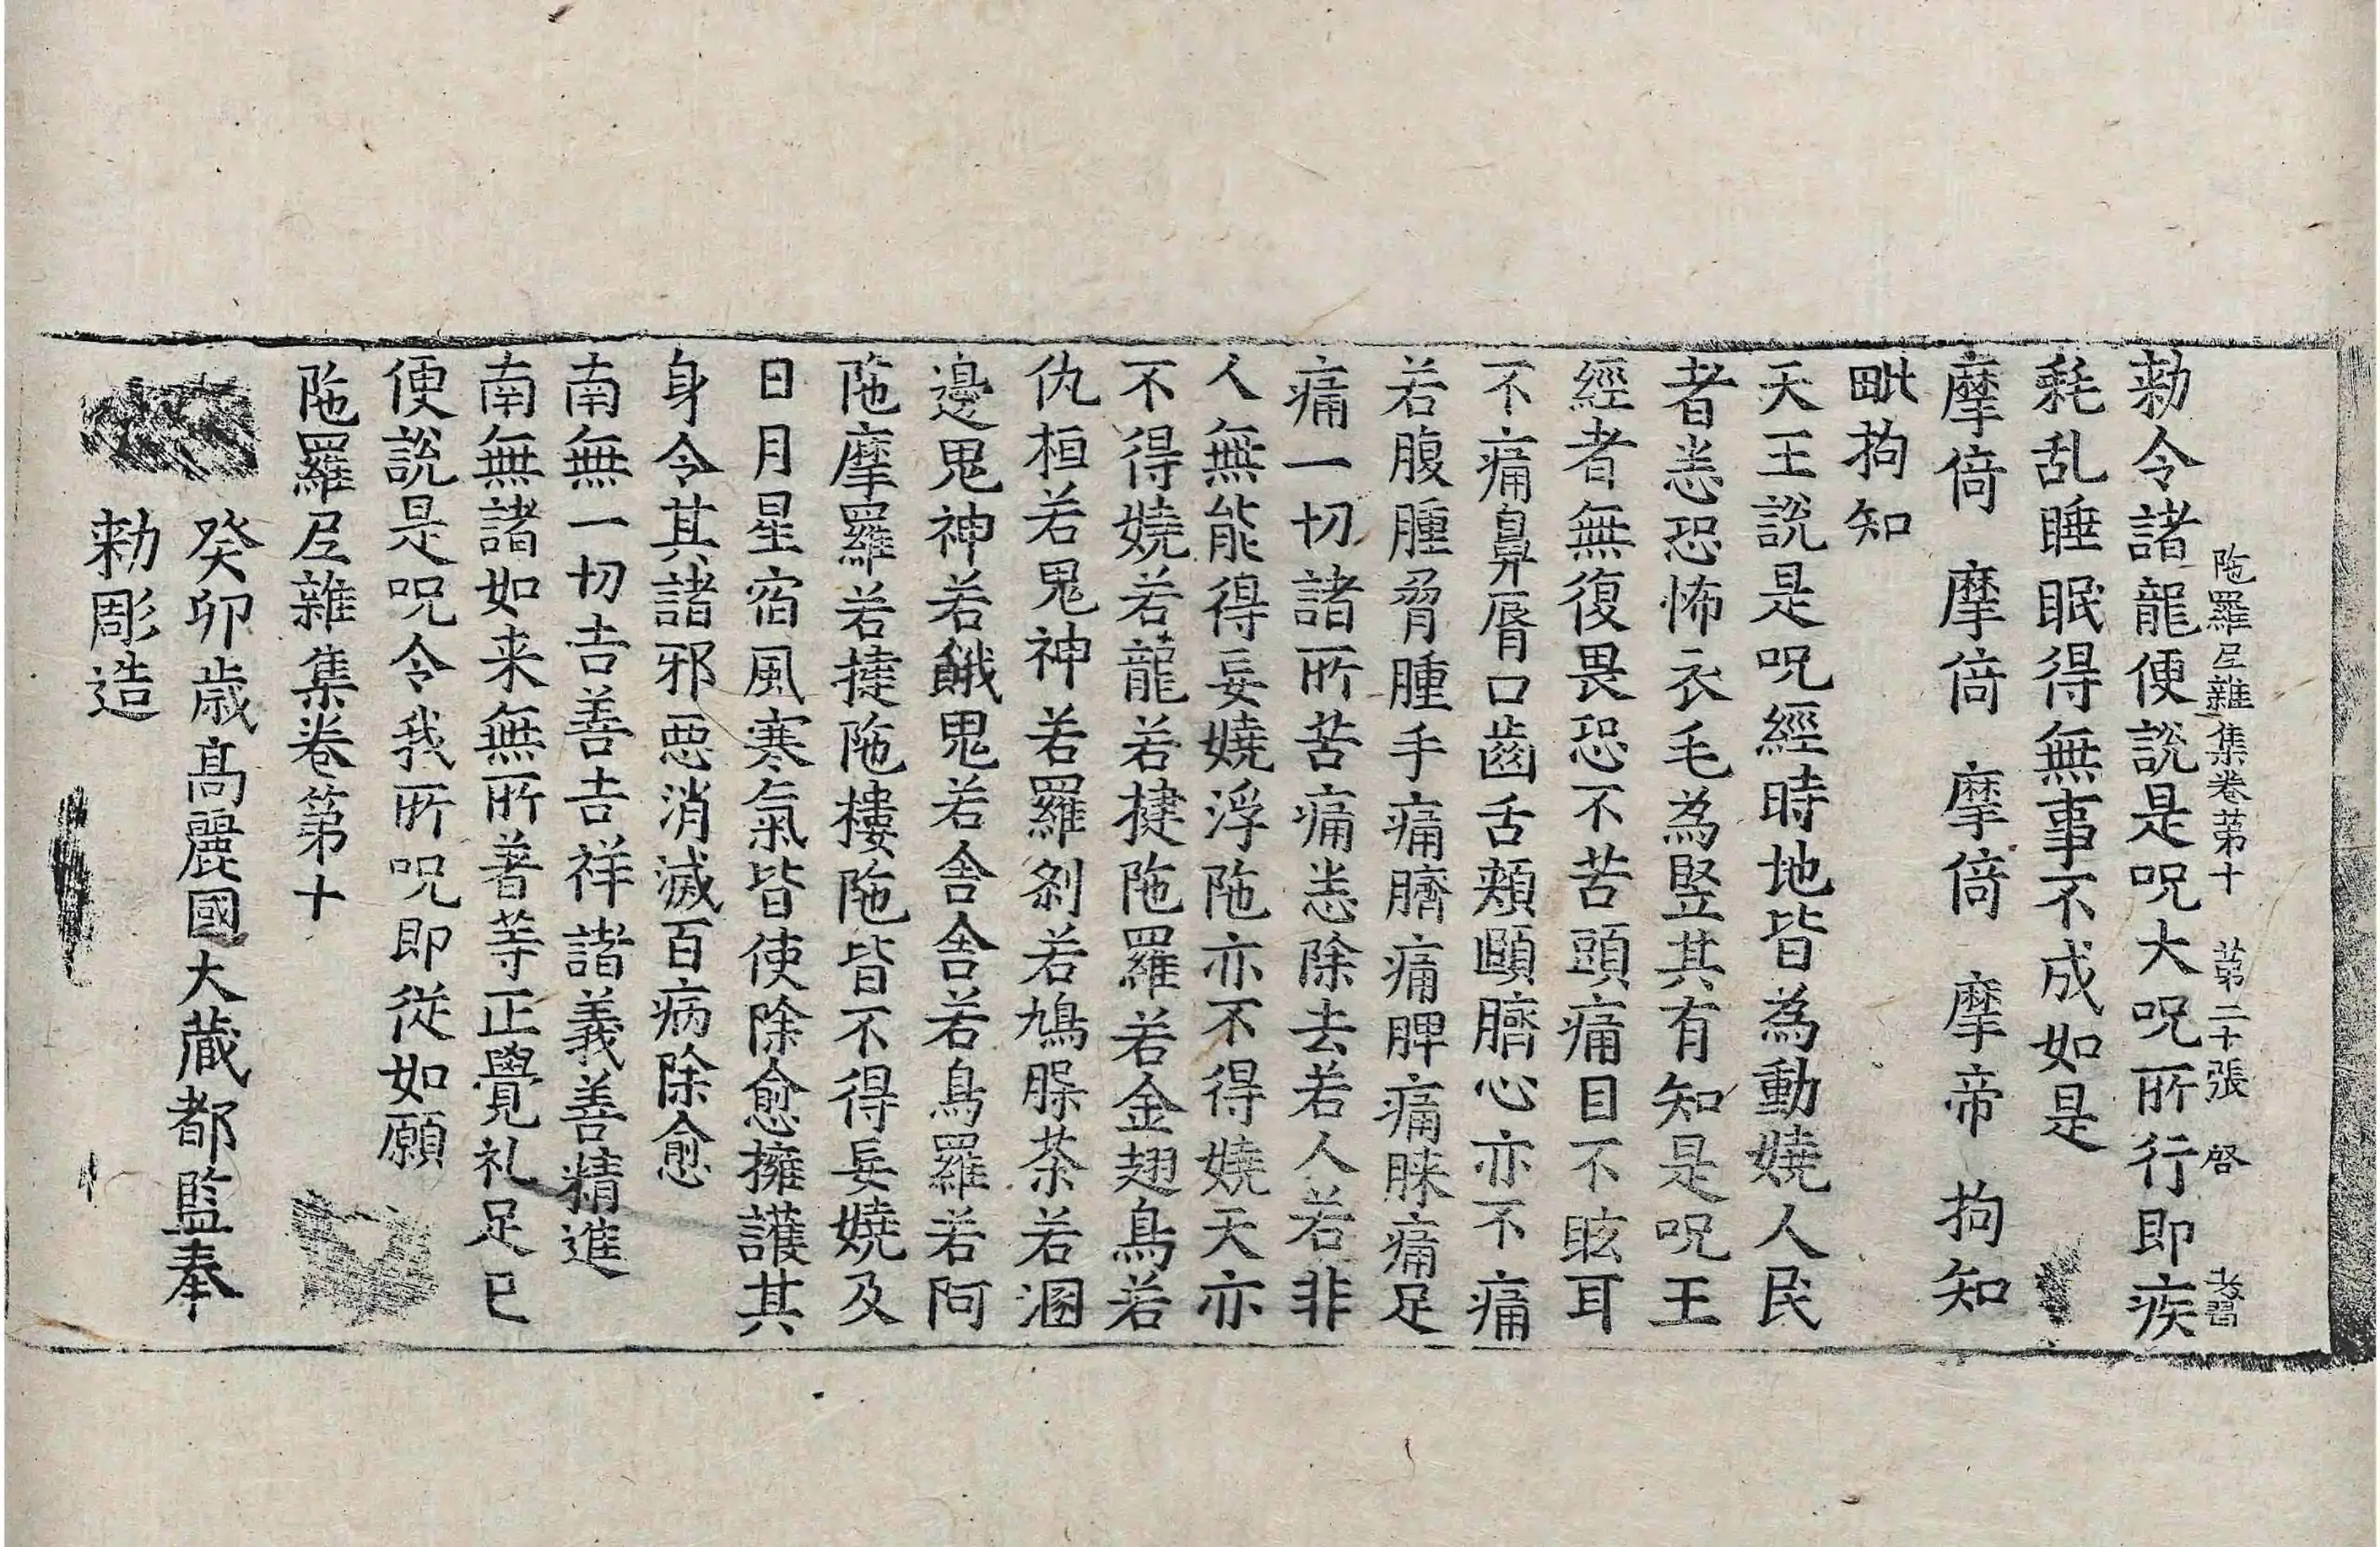 陁羅尼雜集卷第十 第二十張 啓
勑令諸龍便說是呪大呪所行即疾
耗乱睡眠得無事不成如是
摩倚 摩倚 摩倚 摩帝 拘知
毗拘知
天王說是呪經時地皆為動娆人民
者恙恐怖衣毛為竪其有知是呪王
經者無復畏恐不苦頭痛目不眩耳
不痛鼻脣口齒舌頰頤臍心亦不痛
若腹腫脅腫手痛臍痛脾痛脒痛足
痛一切諸所苦痛恙除去若人若非
人無能得妄娆浮陁亦不得娆天亦
不得娆若龍若揵陁羅若金翅鳥若
仇桓若鬼神若羅剎若鳩脲荼若溷
邊鬼神若餓鬼若舎舎若鳥羅若阿
陁摩羅若揵陁樓陁皆不得妄娆及
日月星宿風寒氣皆使除愈擁護其
身令其諸邪惡消滅百病除愈
南無一切吉善吉祥諸義善精進
南無諸如来無所著等正覺礼足已
便說是呪令我所呪即從如願
陁羅尼雜集卷第十
癸卯歲高麗國大藏都監奉
勑彫造